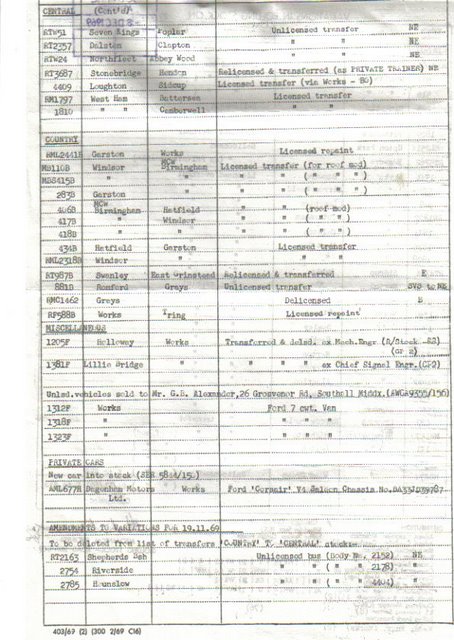 CENTRAL (Cont'd)
RTW51 Seven Kings Poplar Unlicensed transfer NE
RT2357 Dalston Clapton " " NE
RTW24 Northfleet Abbey Wood " " NE
RT3687 Stonebridge Hendon Relicensed & transferred (as PRIVATE TRAINER) NE
4409 Loughton Sidcup Licensed transfer (via Works - BO)
RM1797 West Ham Battersea Licensed transfer
1810 " " Camberwell " "
COUNTRY
RML2441B Garston Works Licensed repaint
MB110B Windsor MCW Birmingham Licensed transfer (for roof mod)
MBS415B " " " " ( " " " )
283B Garston " " " ( " " " )
406B MCW Birmingham Hatfield " " (roof mod)
417B " Windsor " " ( " " )
418B " " " " ( " " )
434B Hatfield Garston Licensed transfer
RML2318B Windsor " " "
RT987B Swanley East Grinstead Relicensed & transferred E
881B Romford Grays Unlicensed transfer SVS to NE
RMC1462 Grays Delicensed E
RF588B Works Tring Licensed repaint
MISCELLANEOUS
1205F Holloway Works Transferred & delsd. ex Mech.Engr.(R/Stock -S3)
(GP 2)
1381F Lillie Bridge " " " " ex Chief Signal Engr.(GP2)
Unlsd.vehicles sold to Mr. G.B. Alexander,26 Grosvenor Rd, Southall Middx.(AWGA9355/156)
1312F Works Ford 7 cwt. Van
1318F " " " "
1323F " " " "
PRIVATE CARS
New car into stock
AML677H Dagenham Motors Ltd. Works Ford 'Corsair' V4 Saloon Chassis No.
AMENDMENTS TO VARIATIONS FOR 19.11.69
To be deleted from list of transfers 'COUNTRY' TO 'CENTRAL' stock:-
RT2163 Shepherds Bsh Unlicensed bus (Body No. 2152) NE
2754 Riverside " " ( " 2178) "
2785 Hounslow " " ( " 4404) "
403/69 (2) (300 2/69 C16)